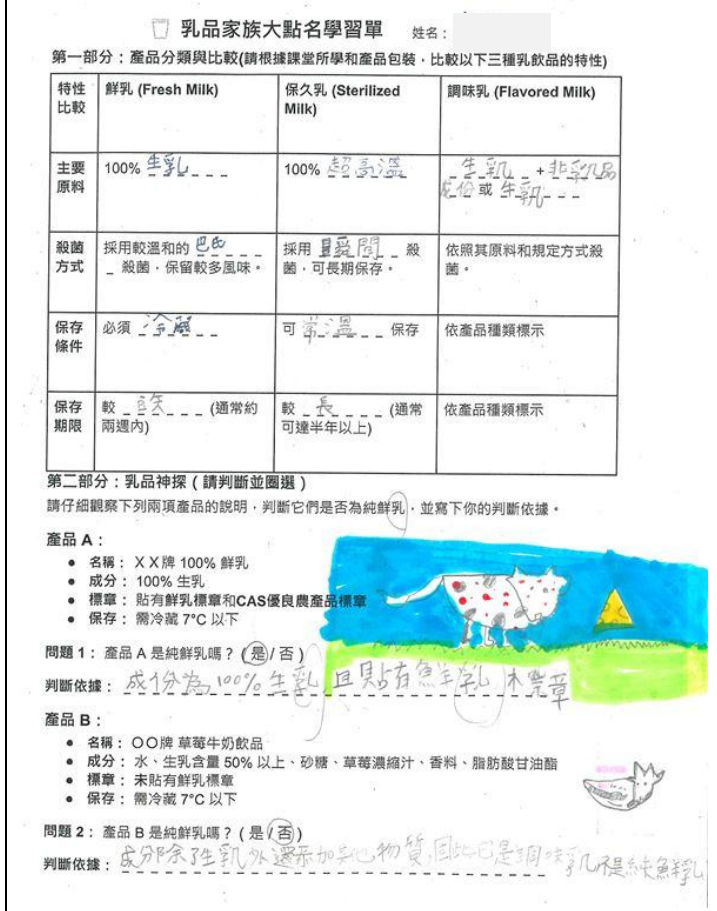 乳品家族大點名學習單 姓名：
第一部分：產品分類與比較(請根據課堂所學和產品包裝，比較以下三種乳飲品的特性)
特性比較 鮮乳 (Fresh Milk) 保久乳 (Sterilized Milk) 調味乳 (Flavored Milk)
主要原料 100% 生乳 100% 超高溫 生乳 + 非乳品成份 或 生乳
殺菌方式 採用較溫和的 巴氏 殺菌，保留較多風味。 採用 瞬間 殺菌，可長期保存。 依照其原料和規定方式殺菌。
保存條件 必須 冷藏 可 常溫 保存 依產品種類標示
保存期限 較 短 (通常約兩週內) 較 長 (通常可達半年以上) 依產品種類標示
第二部分：乳品神探（請判斷並圈選）
請仔細觀察下列兩項產品的說明，判斷它們是否為純鮮乳，並寫下你的判斷依據。
產品 A：
● 名稱：ＸＸ牌 100% 鮮乳
● 成分：100% 生乳
● 標章：貼有鮮乳標章和CAS優良農產品標章
● 保存：需冷藏 7°C 以下
問題 1：產品 A 是純鮮乳嗎？( 是 / 否 )
判斷依據：成份為100%生乳，且貼有鮮乳標章
產品 B：
● 名稱：ＯＯ牌 草莓牛奶飲品
● 成分：水、生乳含量 50% 以上、砂糖、草莓濃縮汁、香料、脂肪酸甘油酯
● 標章：未貼有鮮乳標章
● 保存：需冷藏 7°C 以下
問題 2：產品 B 是純鮮乳嗎？( 是 / 否 )
判斷依據：成分除了生乳外還添加其他物質,因此它是調味乳不是純鮮乳